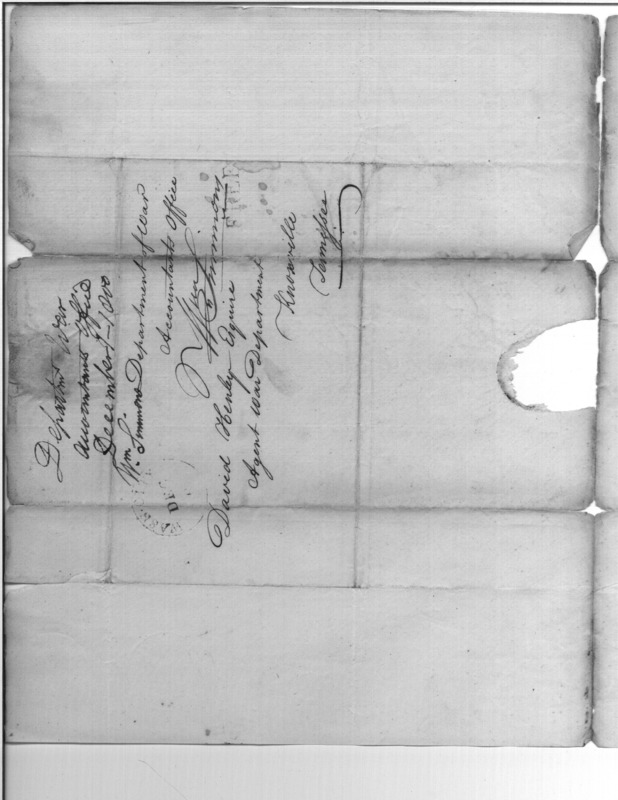 Department War
Accountants Office
December 1800
Wm. Simmons
Department of War
Accountants Office
Wm Simmons
FREE
David Henley Esquire
Agent War Department
Knoxville
Tennissee
DEC